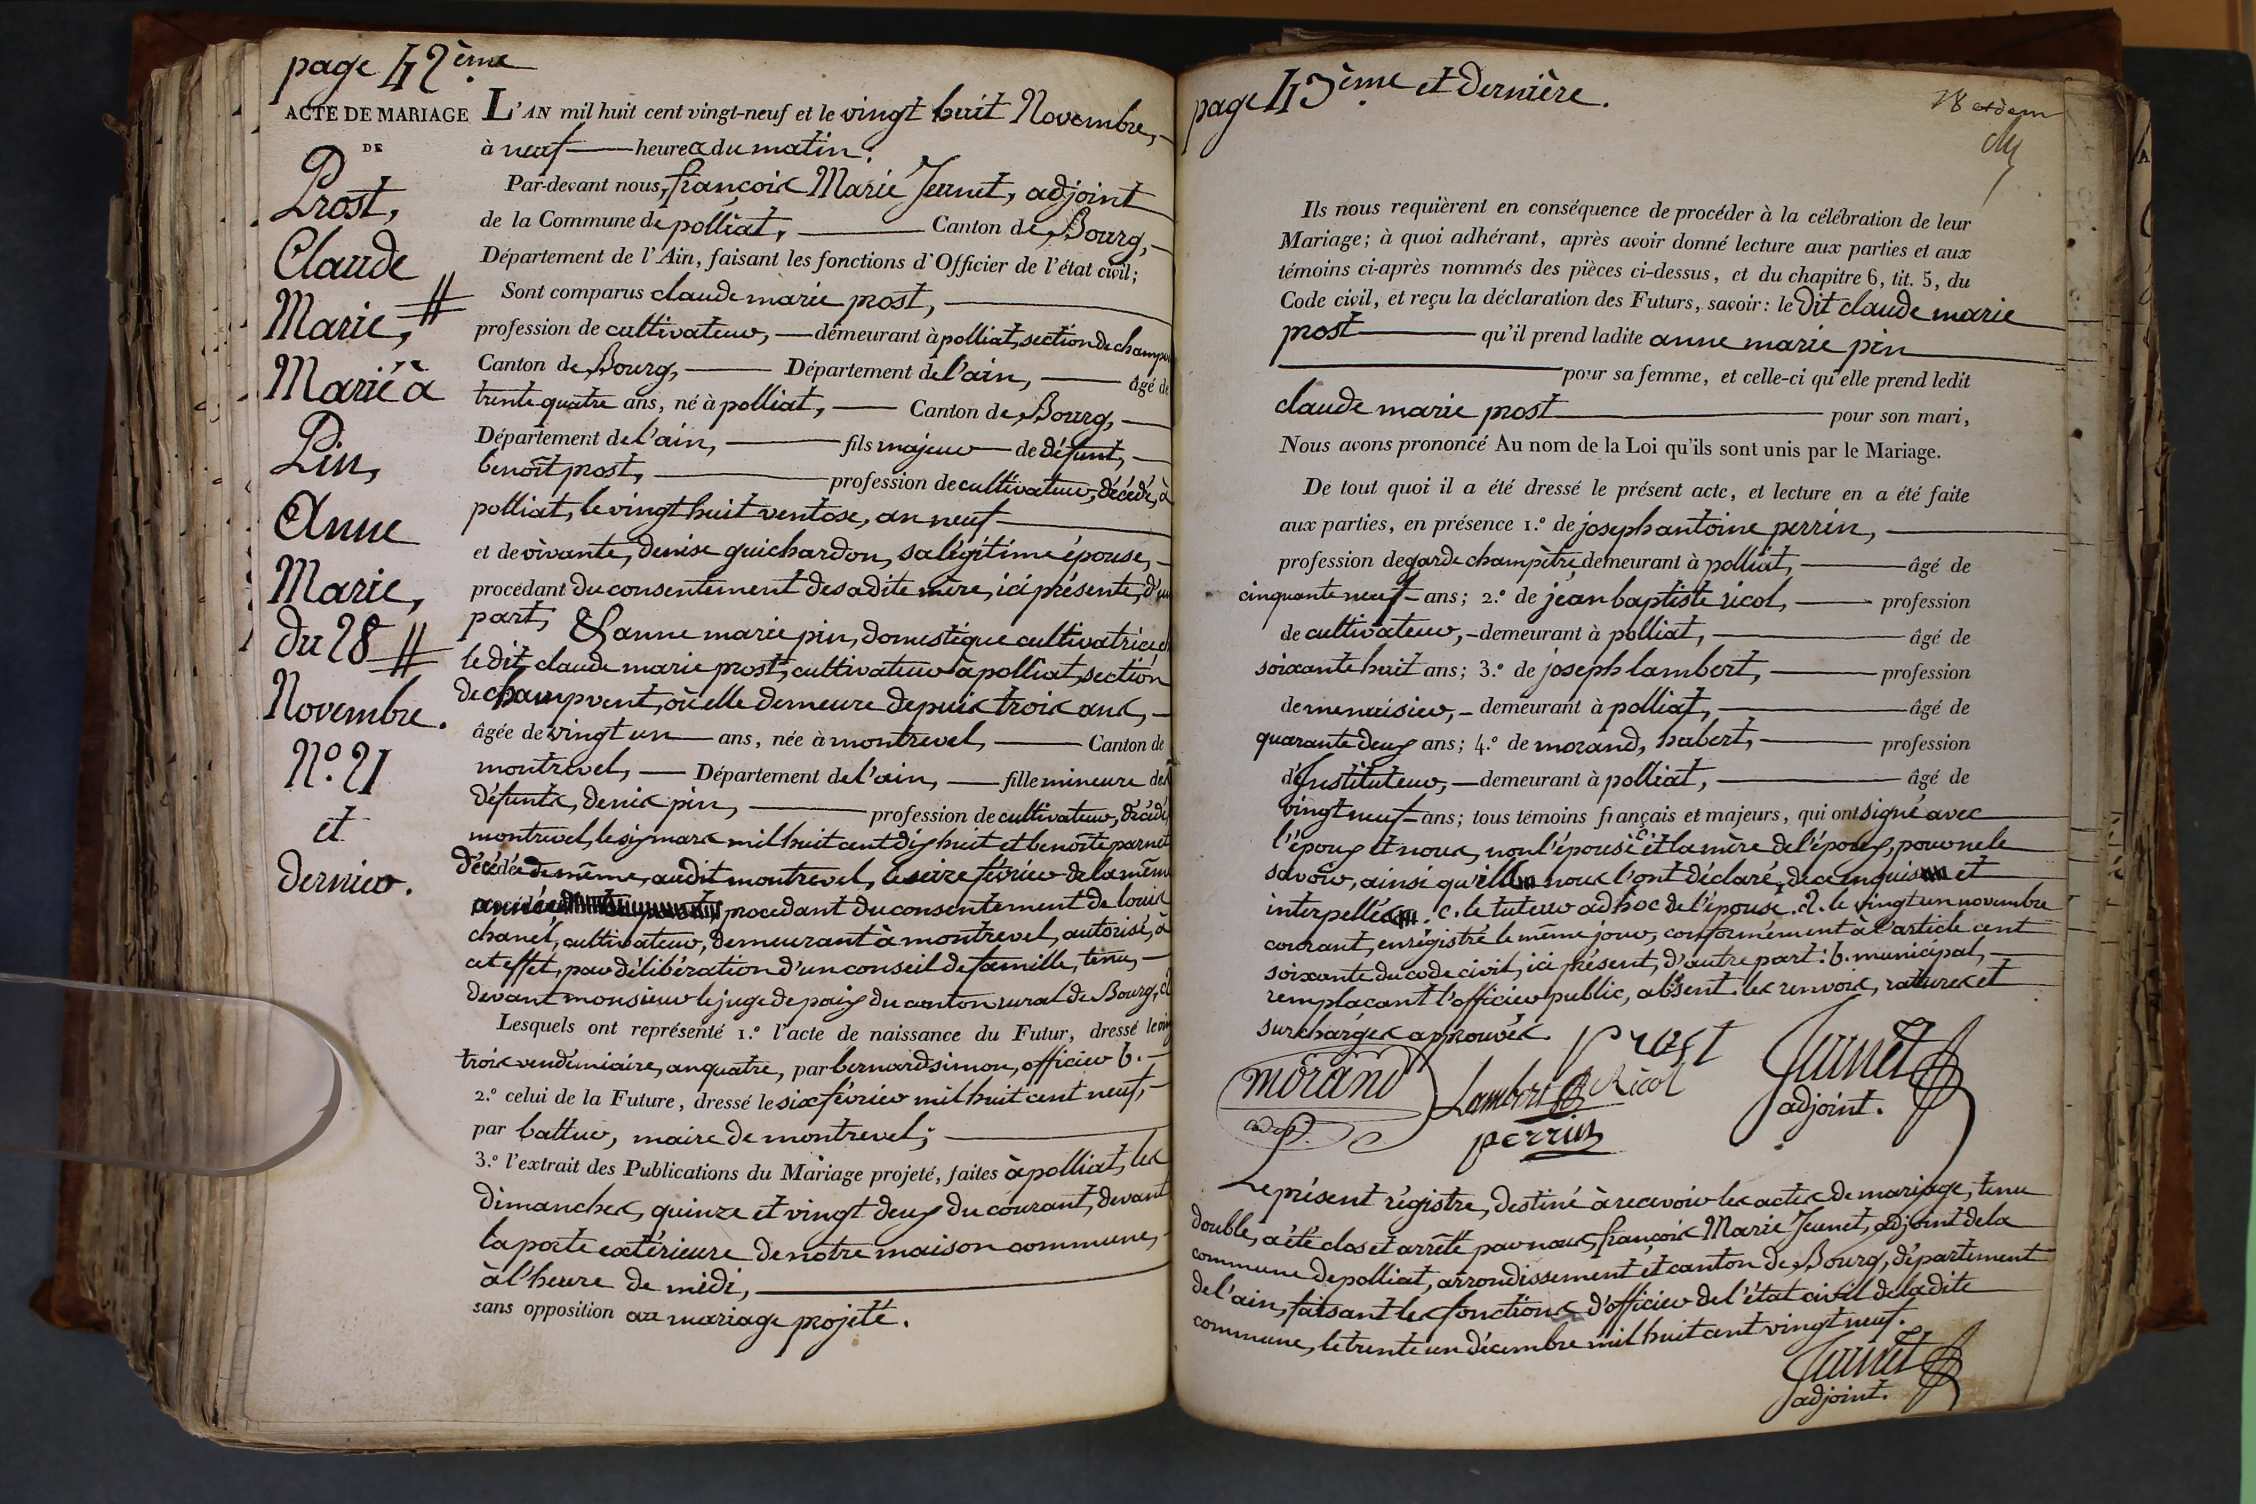 page 42ème
ACTE DE MARIAGE
DE
Prost,
Claude
Marie,
Marié à
Pin,
Anne
Marie,
du 28
Novembre.
N.º 21
et
dernier.
L'AN mil huit cent vingt-neuf et le vingt huit Novembre,
à neuf heures du matin.
Par-devant nous, françois Marie Jeunet, adjoint
de la Commune de polliat, Canton de Bourg,
Département de l'Ain, faisant les fonctions d'Officier de l'état civil;
Sont comparus claude marie prost,
profession de cultivateur, demeurant à polliat, section de champv
Canton de Bourg, Département de l'ain, âgé de
trente quatre ans, né à polliat, Canton de Bourg,
Département de l'ain, fils majeur de défunt,
benoît prost, profession de cultivateur, décédé, à
polliat, le vingt huit ventose, an neuf
et de vivante, denise guichardon, sa légitime épouse,
procédant du consentement de sadite mère, ici présente, d'un
part; & anne marie pin, domestique cultivatrice ch
le dit claude marie prost, cultivateur à polliat, section
de champvent, où elle demeure depuis trois ans,
âgée de vingt un ans, née à montrevel, Canton de
montrevel, Département de l'ain, fille mineure des
défunts, denis pin, profession de cultivateur, décédé
montrevel, le six mars mil huit cent dix huit et benoîte parnet
décédée de même, audit montrevel, le seize février de la même
année procedant du consentement de louis
chanel, cultivateur, demeurant à montrevel, autorisé, à
cet effet, par délibération d'un conseil de famille, tenu,
devant monsieur le juge de paix du canton rural de Bourg, d
Lesquels ont représenté 1.º l'acte de naissance du Futur, dressé le vin
trois vendémiaire, an quatre, par bernard simon, officier b.
2.º celui de la Future, dressé le six février mil huit cent neuf,
par battur, maire de montrevel;
3.º l'extrait des Publications du Mariage projeté, faites à polliat, les
dimanches, quinze et vingt deux du courant, devant
la porte extérieure de notre maison commune,
à l'heure de midi,
sans opposition au mariage projeté.
page 43ème et dernière.
Ils nous requièrent en conséquence de procéder à la célébration de leur
Mariage; à quoi adhérant, après avoir donné lecture aux parties et aux
témoins ci-après nommés des pièces ci-dessus, et du chapitre 6, tit. 5, du
Code civil, et reçu la déclaration des Futurs, savoir: le dit claude marie
prost qu'il prend ladite anne marie pin
pour sa femme, et celle-ci qu'elle prend ledit
claude marie prost pour son mari,
Nous avons prononcé Au nom de la Loi qu'ils sont unis par le Mariage.
De tout quoi il a été dressé le présent acte, et lecture en a été faite
aux parties, en présence 1.º de joseph antoine perrin,
profession de garde champètre, demeurant à polliat, âgé de
cinquante neuf ans; 2.º de jean baptiste ricol, profession
de cultivateur, demeurant à polliat, âgé de
soixante huit ans; 3.º de joseph lambert, profession
de menuisier, demeurant à polliat, âgé de
quarante deux ans; 4.º de morand, habert, profession
d'Instituteur, demeurant à polliat, âgé de
vingt neuf ans; tous témoins français et majeurs, qui ont signé avec
l'époux et nous, non l'épouse c et la mère de l'époux, pour ne le
savoir, ainsi qu'elles nous l'ont déclaré, de ce enquis et
interpellées. c. le tuteur ad hoc de l'épouse. d. le vingt un novembre
courant, enrégistré le même jour, conformément à l'article cent
soixante du code civil, ici présent, d'autre part: b. municipal,
remplaçant l'officier public, absent. les renvois, ratures et
surcharges approuvés.
Prost
Jeunet
adjoint.
morand
Lambert
Ricol
perrin
Le présent régistre, destiné à recevoir les actes de mariage, tenu
double, a été clos et arrêté par nous, françois Marie Jeunet, adjoint de la
commune de polliat, arrondissement et canton de Bourg, département
de l'ain, faisant les fonctions d'officier de l'état civil de ladite
commune, le trente un décembre mil huit cent vingt neuf.
Jeunet
adjoint.